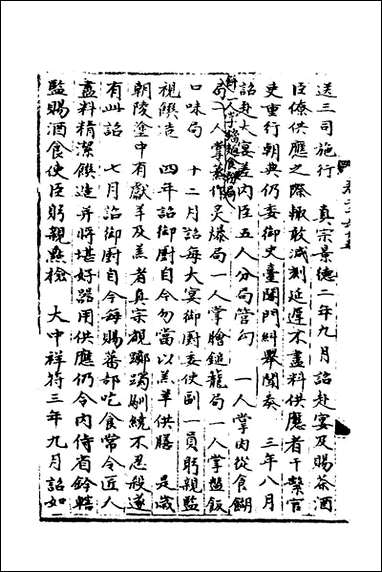 送三司施行　真宗景德二年九月詔赴宴及賜茶酒
臣僚供應之際輙敢減刻延遲不盡料供應者干繫官
吏重行朝典仍委御史臺閤門糾舉聞奏　三年八月
詔赴大宴差內臣五人分局管勾　一人掌肉從食餬
餅一人掌
局一人掌煮作炙爆局一人掌膾鎚龍局一人掌盤飯
口味局　十二月詔每大宴御厨委使副一員躬親監
視饌造　四年詔御厨自今勿當以羔羊供膳　是歲
朝陵塗中有獻羊及羔者真宗覩躑躅馴繞不忍殺遂
有此詔　七月詔御厨自今每賜蕃部吃食常令匠人
盡料精潔饌造并將堪好器用供應仍令內侍省鈐轄
監賜酒食使臣躬親點檢　大中祥符三年九月詔如